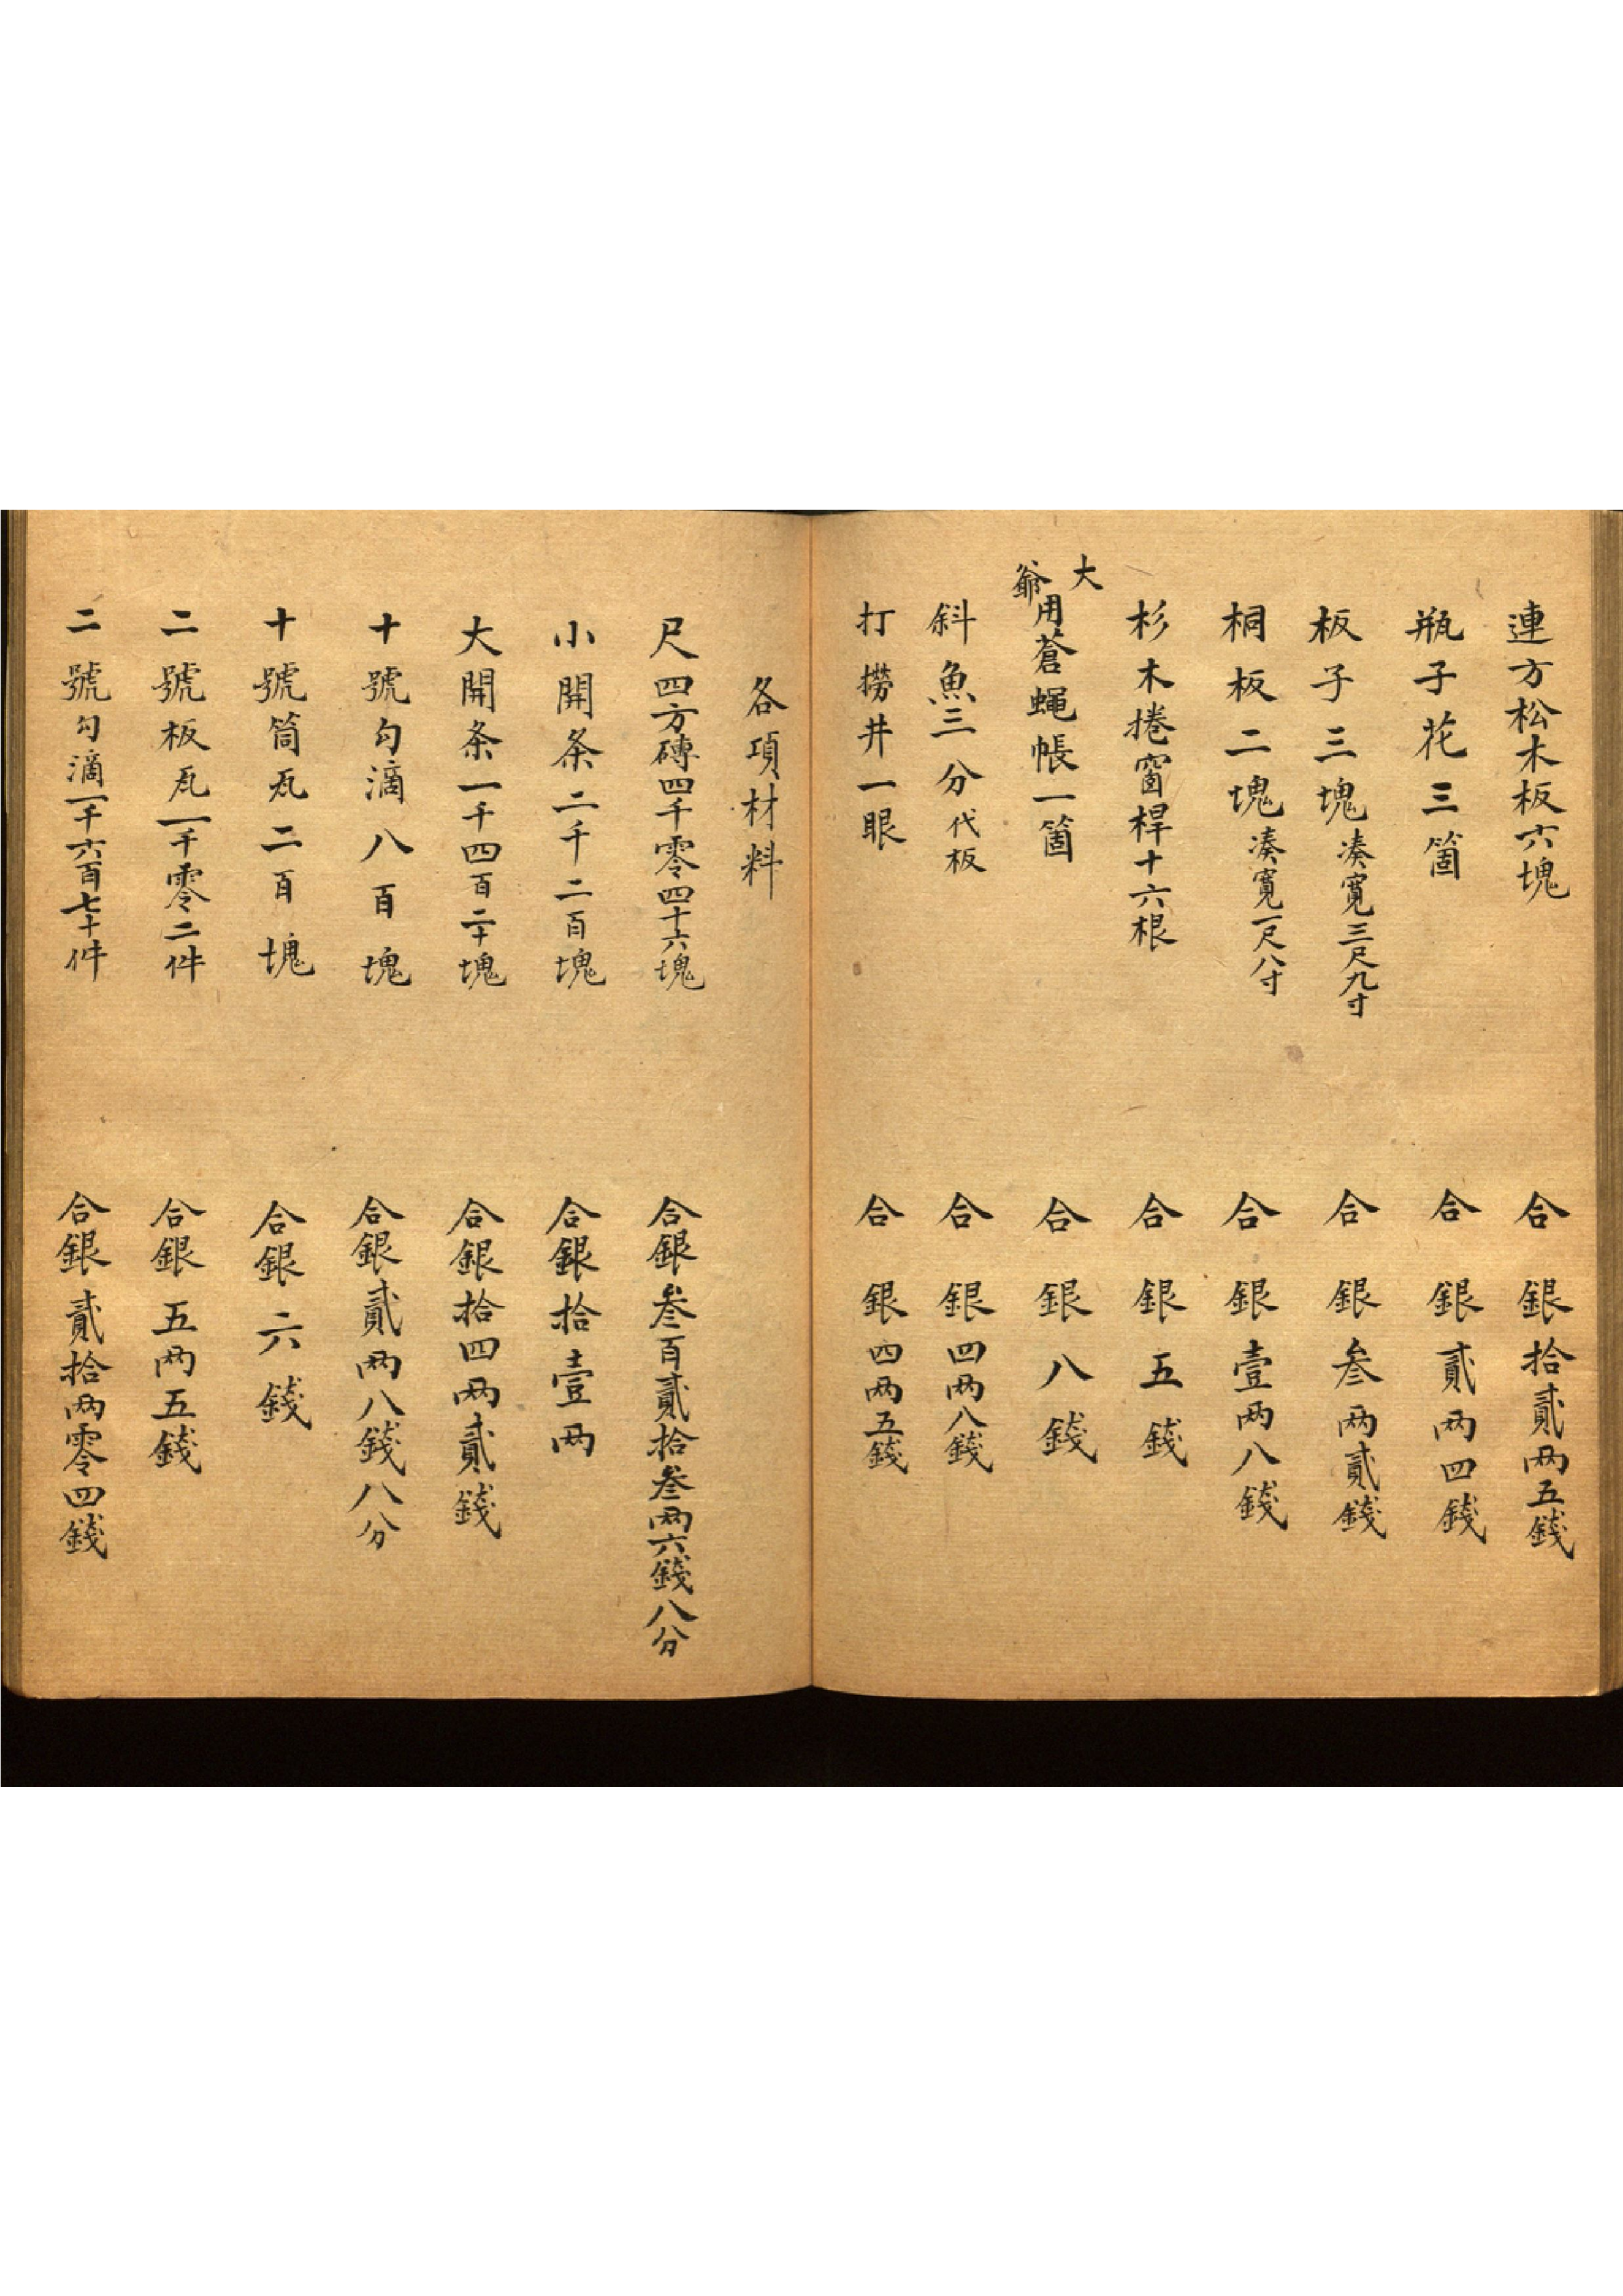 連方松木板六塊 合銀拾貳两五錢
瓶子花三箇 合銀貳两四錢
板子三塊湊寬三尺九寸 合銀叁两貳錢
桐板二塊湊寬一尺八寸 合銀壹两八錢
杉木捲窗桿十六根 合銀五錢
大
爺用蒼蠅帳一箇 合銀八錢
斜魚三分代板 合銀四两八錢
打撈井一眼 合銀四两五錢
各項材料
尺四方磚四千零四十六塊 合銀叁百貳拾叁两六錢八分
小開条二千二百塊 合銀拾壹两
大開条一千四百二十塊 合銀拾四两貳錢
十號勾滴八百塊 合銀貳两八錢八分
十號筒瓦二百塊 合銀六錢
二號板瓦一千零二件 合銀五两五錢
二號勾滴一千六百七十件 合銀貳拾两零四錢